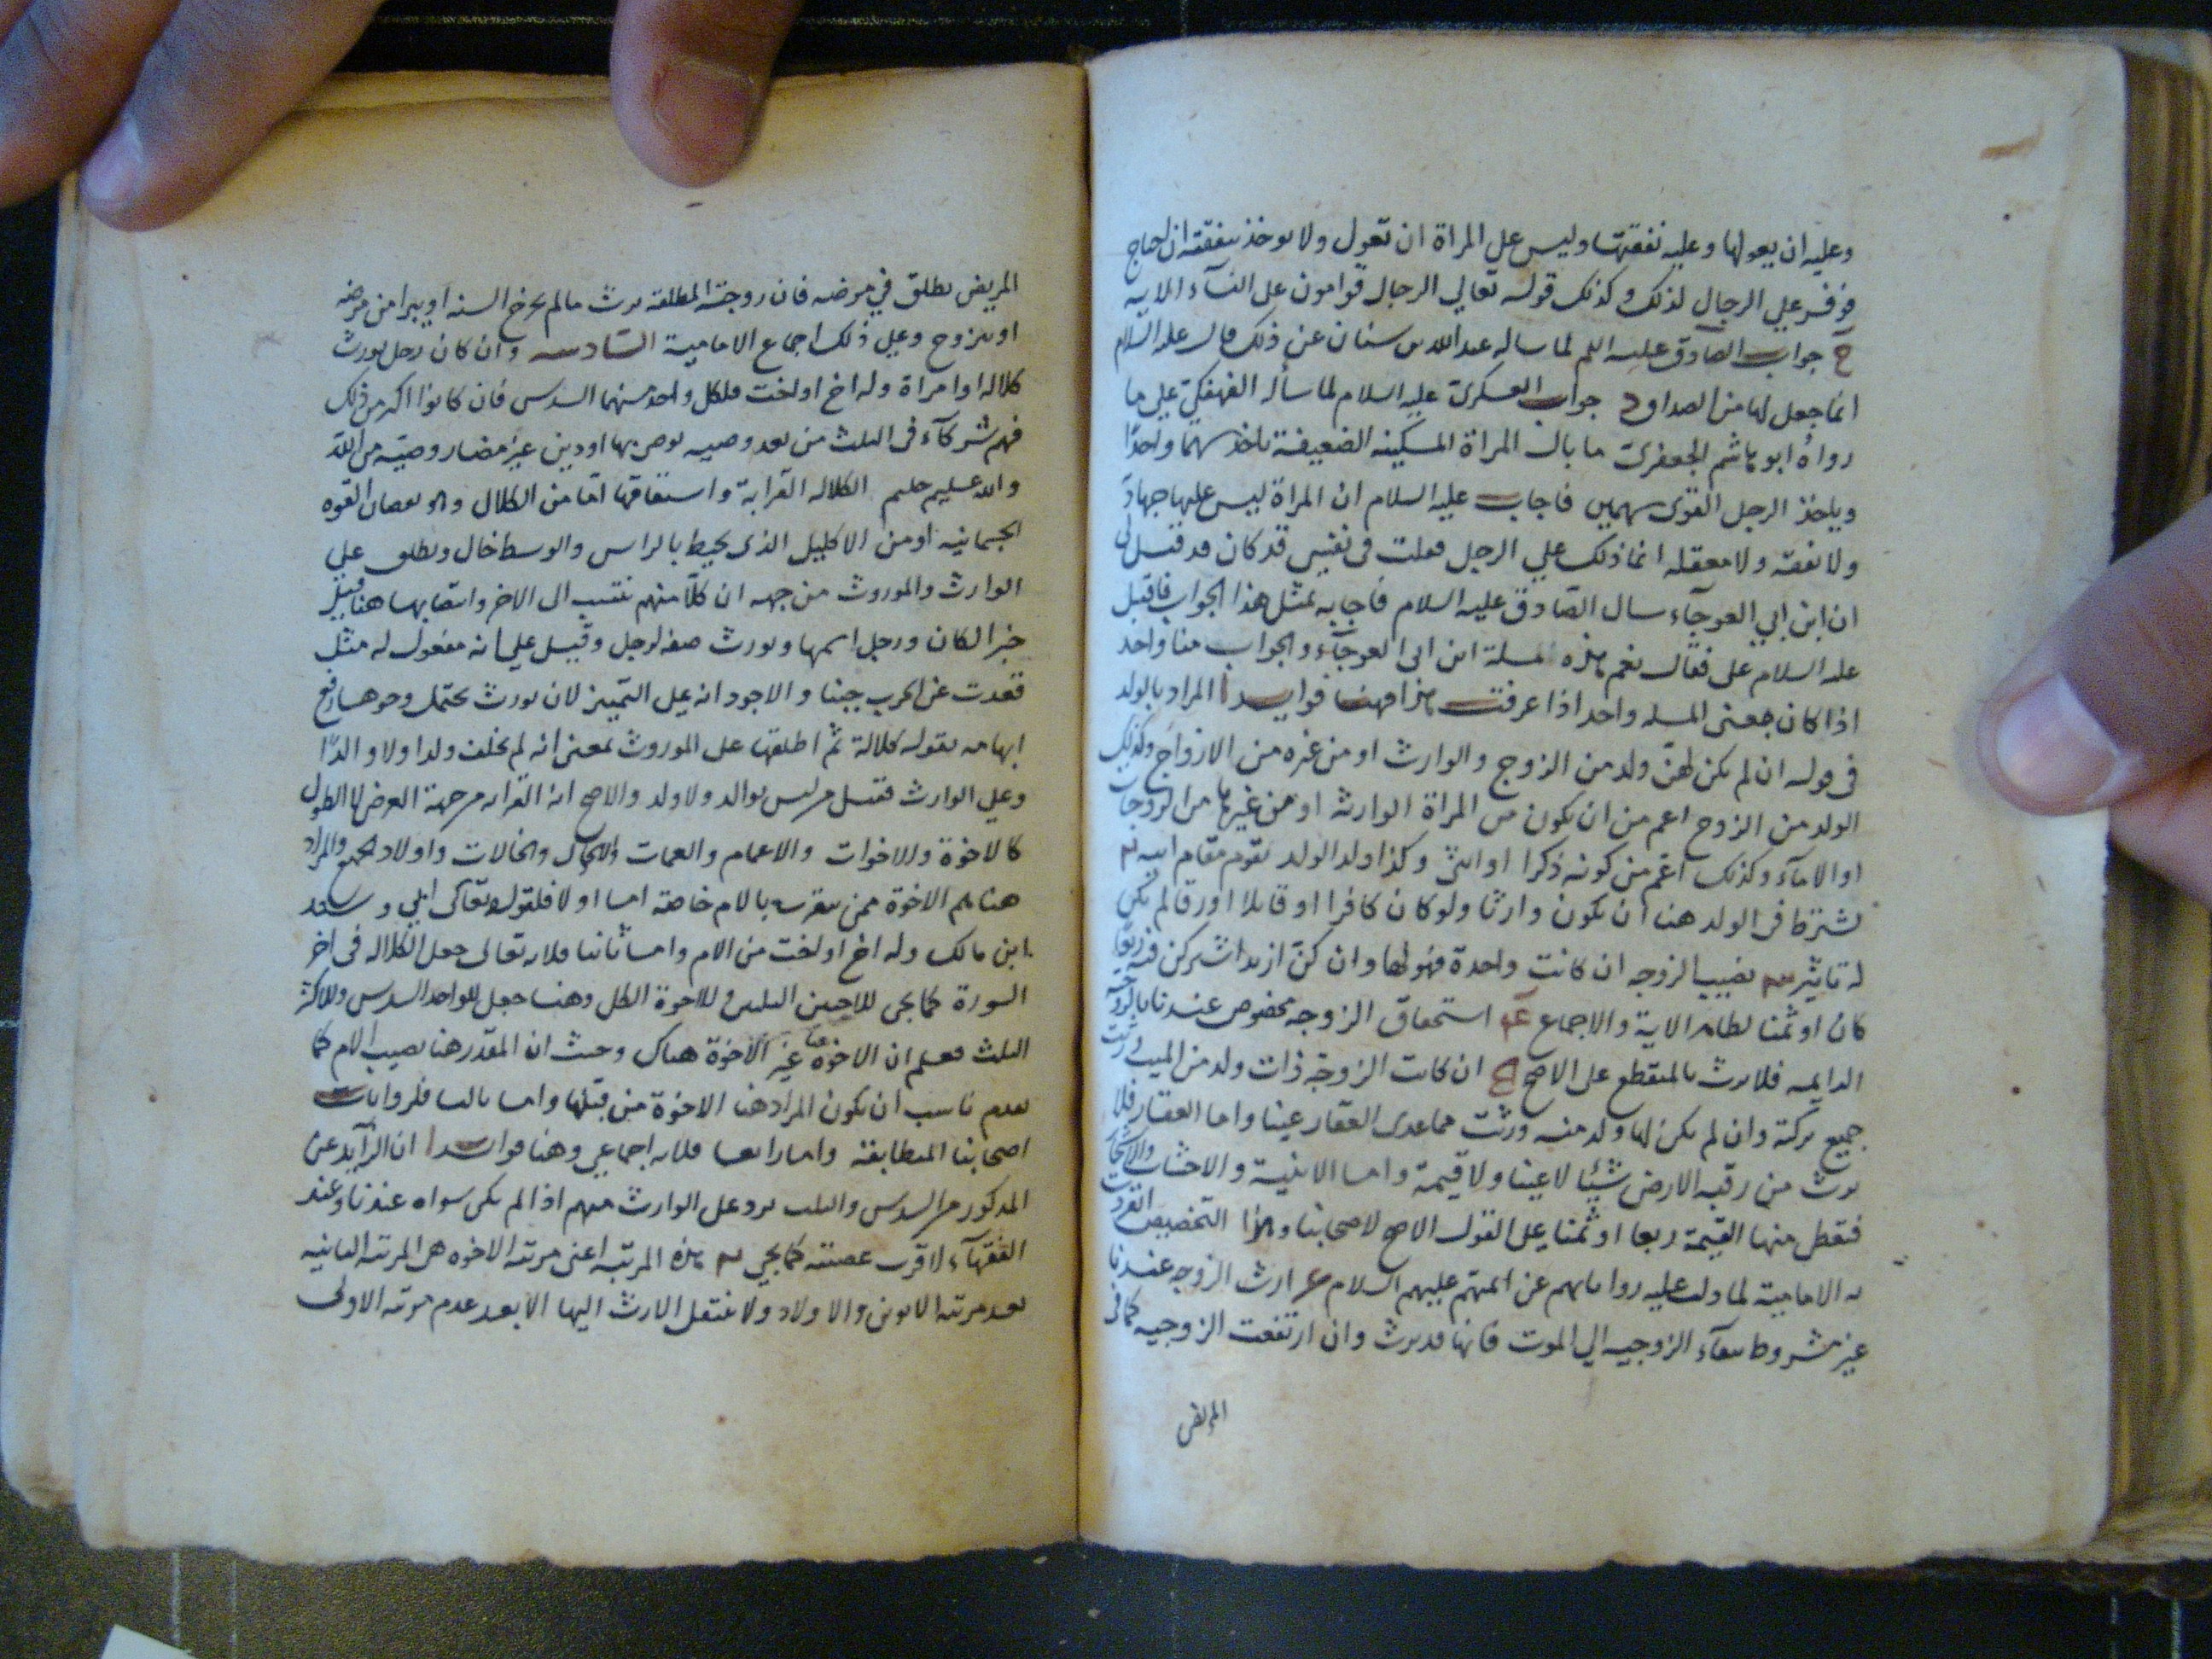 وعليه ان يعولها وعليه نفقتها وليس على المراة ان تعول ولا يوخذ بنفقته ان احتاج
فوفر على الرجال لذلك وكذلك قوله تعالى الرجال قوامون على النسآء الاية
ج جواب الصادق عليه السلم لما ساله عبد الله بن سنان عن ذلك قال عليه السلام
انما جعل لها من الصداق د جواب العسكري عليه السلام لما سأله الفهفكي على ما
رواه ابو هاشم الجعفري ما بال المراة المسكينه الضعيفة تاخذ سهما واحدا
وياخذ الرجل القوى سهمين فاجاب عليه السلام ان المراة ليس عليها جهاد
ولا نفقه ولا معقله انما ذلك على الرجل فقلت في نفسي قد كان قد قيل لي
ان ابن ابي العوجآء سال الصادق عليه السلام فاجابه بمثل هذا الجواب فاقبل
عليه السلام على فقال نعم هذه المسلة ابن ابى العوجآء والجواب منا واحد
اذا كان معنى المسله واحد اذا عرفت هذا فهنا فوايد ا المراد بالولد
فى قوله ان لم يكن لهن ولد من الزوج والوارث او من غيره من الازواج وكذلك
الولد من الزوج اعم من ان يكون من المراة الوارثه او من غيرها من الزوجات
او الامآء وكذلك اعم من كونه ذكرا او انثى وكذا ولد الولد يقوم مقام ابيه
يشترط فى الولد هنا ان يكون وارثا ولو كان كافرا او قاتلا او رقا لم يكن
له تاثير نصيب الزوجه ان كانت واحدة فهو لها وان كن ازيد اشتركن فيه ربعا
كان او ثمنا لظاهر الاية والاجماع استحقاق الزوجه مخصوص عندنا بالزوجيه
الدايمه فلا يرث بالمنقطع على الاصح ان كانت الزوجة ذات ولد من الميت ورثت
جميع تركته وان لم يكن لها ولد منه ورثت مما عدى العقار عينا واما العقار فلا
يرث من رقبه الارض شيئا لا عينا ولا قيمة واما الابنية والاخشاب والاشجار
فتعطى منها القيمة ربعا او ثمنا على القول الاصح لاصحابنا وهذا التخصيص انفردت
به الامامية لما دلت عليه رواياتهم عن ائمتهم عليهم السلام ارث الزوجه عندنا
غير مشروط ببقآء الزوجيه الى الموت فانها قد يرث وان ارتفعت الزوجيه كما في
المريض
المريض يطلق في مرضه فان زوجته المطلقة يرث مالم يخرج السنة او يبرا من مرضه
او يتزوج وعلى ذلك اجماع الامامية السادسه وان كان رجل يورث
كلاله او امراة وله اخ او اخت فلكل واحد منهما السدس فان كانوا اكثر من ذلك
فهم شركآء فى الثلث من بعد وصيه يوصى بها او دين غير مضار وصية من الله
والله عليم حليم الكلاله القرابة واشتقاقها اما من الكلال وهو نقصان القوه
الجسمانيه او من الاكليل الذى يحيط بالراس والوسط خال ويطلق على
الوارث والموروث من جهه ان كلا منهم ينتسب الى الاخر وانتصابها هنا قيل
خبر الكان ورجل اسمها ويورث صفه لرجل وقيل على انه مفعول له مثل
قعدت عن الحرب جبنا والاجود انه على التمييز لان يورث يحتمل وجوها رفع
ابهامه بقوله كلالة ثم اطلقها على الموروث بمعنى انه لم يخلف ولدا ولا والدا
وعلى الوارث فقيل من ليس بوالد ولا ولد والاصح انه القرابه من جهة العرض لا الطول
كالاخوة والاخوات والاعمام والعمات والاخوال والخالات واولاد الجميع والمراد
هنا هم الاخوة ممن يتقرب بالام خاصة اما اولا فلقوله تعالى ابي وسعد
ابن مالك وله اخ او اخت من الام واما ثانيا فلانه تعالى جعل الكلاله فى اخر
السورة كما يجى للاختين الثلثين وللاخوة الكل وهنا جعل للواحد السدس وللاكثر
الثلث فعلم ان الاخوة هنا غير الاخوة هناك وحيث ان المقدر هنا نصيب الام كما
تقدم ناسب ان يكون المراد هنا الاخوة من قبلها واما ثالثا فلروايات
اصحابنا المتطابقة واما رابعا فلانه اجماعي وهنا فوايد ا ان الزآيد عن
المذكور من السدس والثلث يرد على الوارث منهم اذا لم يكن سواه عندنا وعند
الفقهآء لاقرب عصبته كما يجي هذه المرتبه اعنى مرتبه الاخوه هى المرتبه الثانيه
بعد مرتبه الابوين والاولاد ولا ينتقل الارث اليها الا بعد عدم مرتبه الاولى